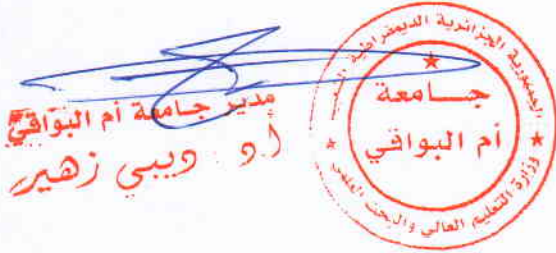 مدير جامعة أم البواقي
أ.د. ديبي زهير
الجمهورية الجزائرية الديمقراطية الشعبية
جـــامعة
أم البواقي
وزارة التعليم العالي والبحث العلمي